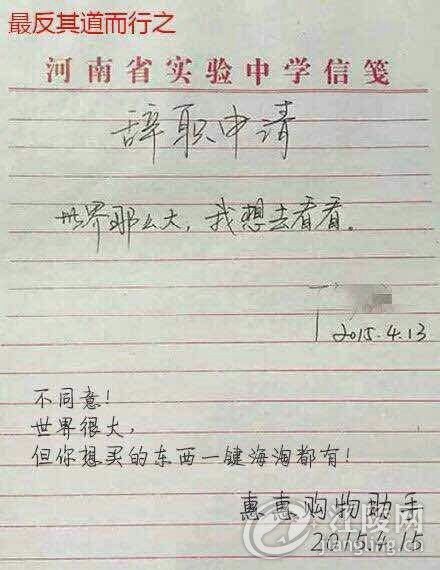 最反其道而行之
河南省实验中学信笺
辞职申请
世界那么大，我想去看看。
2015.4.13
不同意！
世界很大，
但你想买的东西一键海淘都有！
惠惠购物助手
2015.4.15
江陵网
jiangling.cn